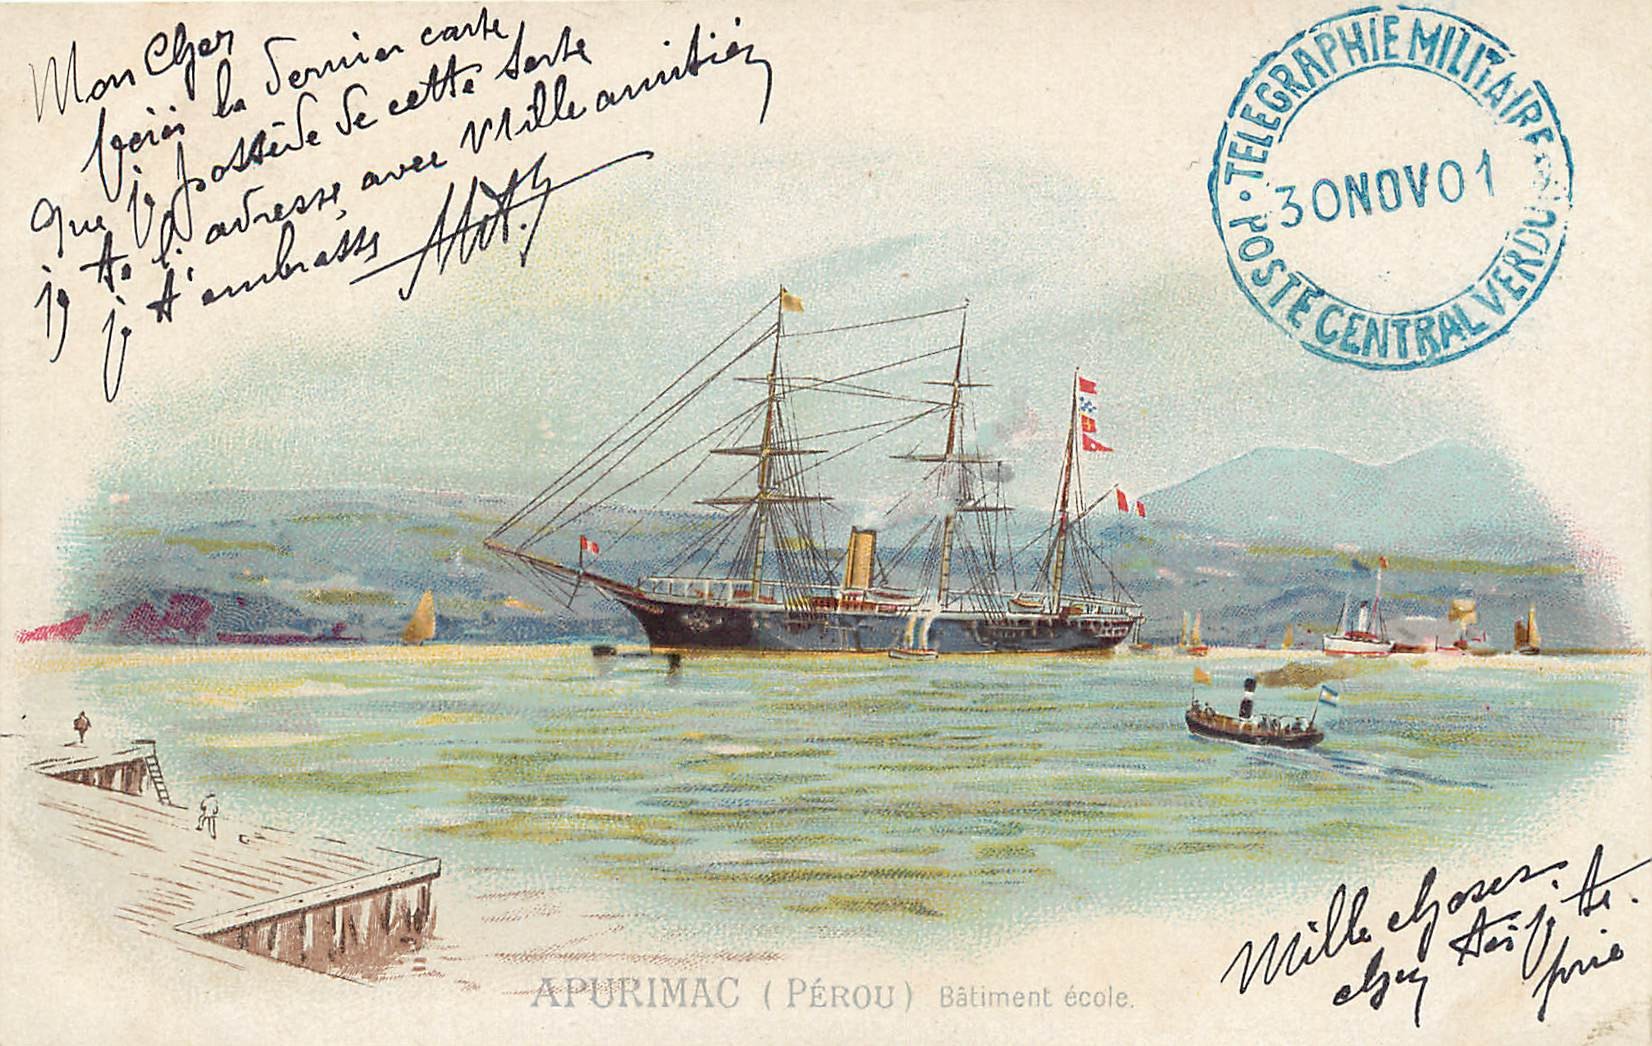 Mon Cher
Voici la dernier carte
que je possède de cette sorte
je te l'adresse, avec Mille amitiés
je t'embrasse
TELEGRAPHIE MILITAIRE
30 NOV 01
POSTE CENTRAL VERDU
Mille choses
chez toi je te
prie
APURIMAC (PÉROU) Bâtiment école.